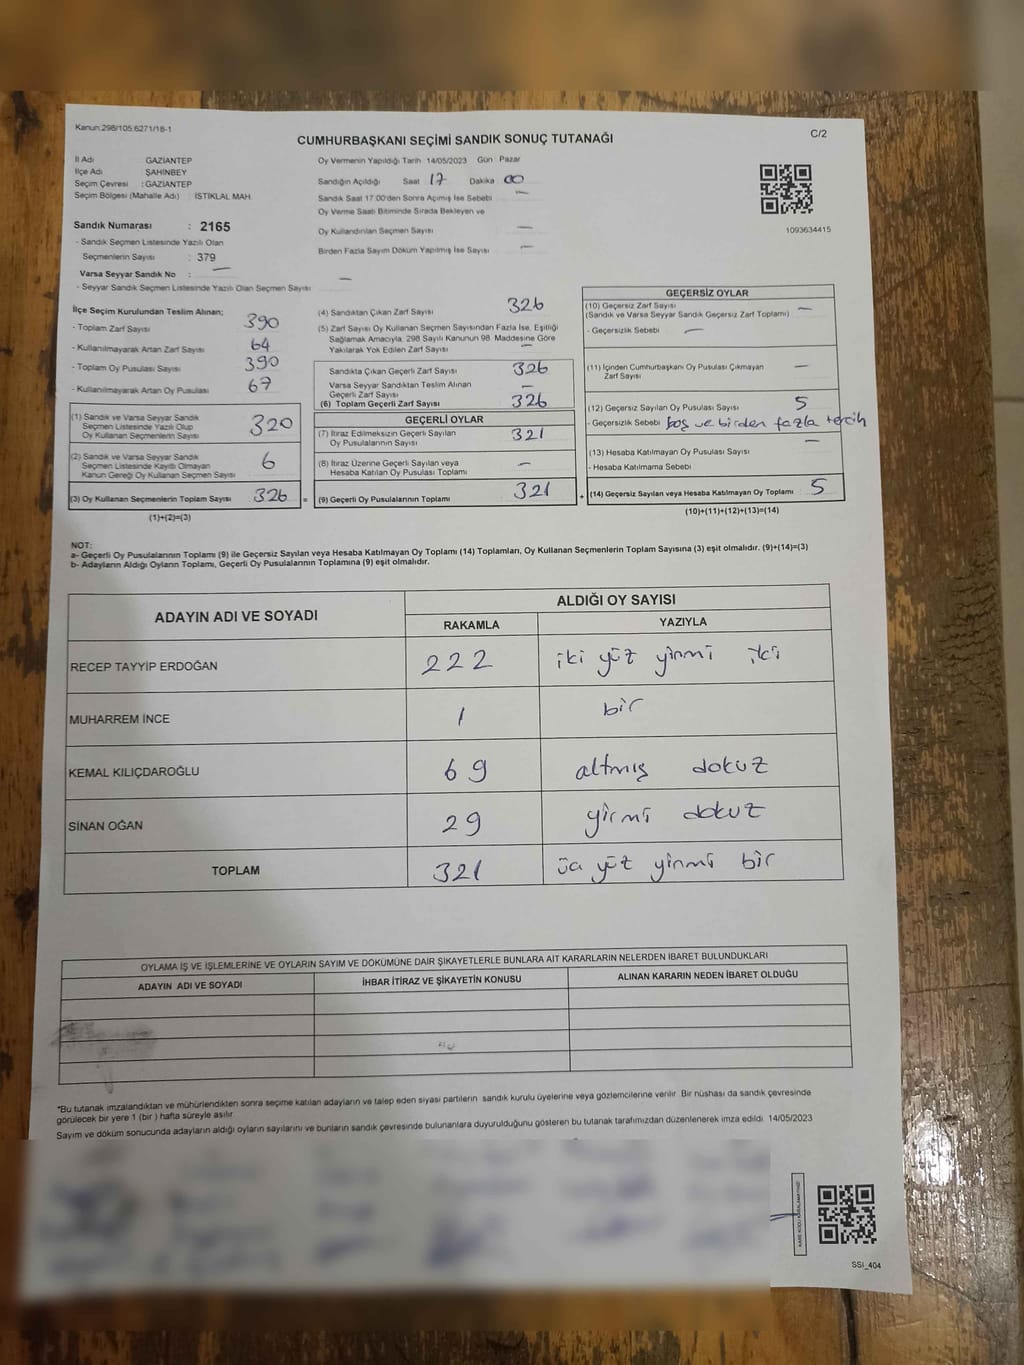 Kanun:298/105,6271/18-1
C/2
CUMHURBAŞKANI SEÇİMİ SANDIK SONUÇ TUTANAĞI
İl Adı GAZİANTEP
İlçe Adı ŞAHİNBEY
Seçim Çevresi : GAZİANTEP
Seçim Bölgesi (Mahalle Adı) : İSTİKLAL MAH.
Sandık Numarası : 2165
- Sandık Seçmen Listesinde Yazılı Olan
Seçmenlerin Sayısı : 379
Varsa Seyyar Sandık No : —
- Seyyar Sandık Seçmen Listesinde Yazılı Olan Seçmen Sayısı —
Oy Vermenin Yapıldığı Tarih 14/05/2023 Gün Pazar
Sandığın Açıldığı Saat 17 Dakika 00
Sandık Saat 17:00'den Sonra Açımış İse Sebebi —
Oy Verme Saati Bitiminde Sırada Bekleyen ve
Oy Kullandırılan Seçmen Sayısı —
Birden Fazla Sayım Döküm Yapılmış İse Sayısı —
1093634415
İlçe Seçim Kurulundan Teslim Alınan;
- Toplam Zarf Sayısı 390
- Kullanılmayarak Artan Zarf Sayısı 64
- Toplam Oy Pusulası Sayısı 390
- Kullanılmayarak Artan Oy Pusulası 67
(1) Sandık ve Varsa Seyyar Sandık
Seçmen Listesinde Yazılı Olup
Oy Kullanan Seçmenlerin Sayısı 320
(2) Sandık ve Varsa Seyyar Sandık
Seçmen Listesinde Kayıtlı Olmayan
Kanun Gereği Oy Kullanan Seçmen Sayısı 6
(3) Oy Kullanan Seçmenlerin Toplam Sayısı 326 =
(1)+(2)=(3)
(4) Sandıktan Çıkan Zarf Sayısı 326
(5) Zarf Sayısı Oy Kullanan Seçmen Sayısından Fazla İse, Eşitliği
Sağlamak Amacıyla; 298 Sayılı Kanunun 98. Maddesine Göre
Yakılarak Yok Edilen Zarf Sayısı —
Sandıkta Çıkan Geçerli Zarf Sayısı 326
Varsa Seyyar Sandıktan Teslim Alınan
Geçerli Zarf Sayısı —
(6) Toplam Geçerli Zarf Sayısı 326
GEÇERLİ OYLAR
(7) İtiraz Edilmeksizin Geçerli Sayılan
Oy Pusulasının Sayısı 321
(8) İtiraz Üzerine Geçerli Sayılan veya
Hesaba Katılan Oy Pusulası Toplamı —
(9) Geçerli Oy Pusulalarının Toplamı 321 +
GEÇERSİZ OYLAR
(10) Geçersiz Zarf Sayısı
(Sandık ve Varsa Seyyar Sandık Geçersiz Zarf Toplamı) —
- Geçersizlik Sebebi —
(11) İçinden Cumhurbaşkanı Oy Pusulası Çıkmayan
Zarf Sayısı —
(12) Geçersiz Sayılan Oy Pusulası Sayısı 5
- Geçersizlik Sebebi boş ve birden fazla tercih
(13) Hesaba Katılmayan Oy Pusulası Sayısı —
- Hesaba Katılmama Sebebi
(14) Geçersiz Sayılan veya Hesaba Katılmayan Oy Toplamı 5
(10)+(11)+(12)+(13)=(14)
NOT:
a- Geçerli Oy Pusulalarının Toplamı (9) ile Geçersiz Sayılan veya Hesaba Katılmayan Oy Toplamı (14) Toplamları, Oy Kullanan Seçmenlerin Toplam Sayısına (3) eşit olmalıdır. (9)+(14)=(3)
b- Adayların Aldığı Oyların Toplamı, Geçerli Oy Pusulalarının Toplamına (9) eşit olmalıdır.
ADAYIN ADI VE SOYADI
ALDIĞI OY SAYISI
RAKAMLA YAZIYLA
RECEP TAYYİP ERDOĞAN 222 iki yüz yirmi iki
MUHARREM İNCE 1 bir
KEMAL KILIÇDAROĞLU 69 altmış dokuz
SİNAN OĞAN 29 yirmi dokuz
TOPLAM 321 üç yüz yirmi bir
OYLAMA İŞ VE İŞLEMLERİNE VE OYLARIN SAYIM VE DÖKÜMÜNE DAİR ŞİKAYETLERLE BUNLARA AİT KARARLARIN NELERDEN İBARET BULUNDUKLARI
ADAYIN ADI VE SOYADI İHBAR İTİRAZ VE ŞİKAYETİN KONUSU ALINAN KARARIN NEDEN İBARET OLDUĞU
*Bu tutanak imzalandıktan ve mühürlendikten sonra seçime katılan adayların ve talep eden siyasi partilerin sandık kurulu üyelerine veya gözlemcilerine verilir. Bir nüshası da sandık çevresinde
görülecek bir yere 1 (bir ) hafta süreyle asılır.
Sayım ve döküm sonucunda adayların aldığı oyların sayılarını ve bunların sandık çevresinde bulunanlara duyurulduğunu gösteren bu tutanak tarafımızdan düzenlenerek imza edildi. 14/05/2023
SSI_404